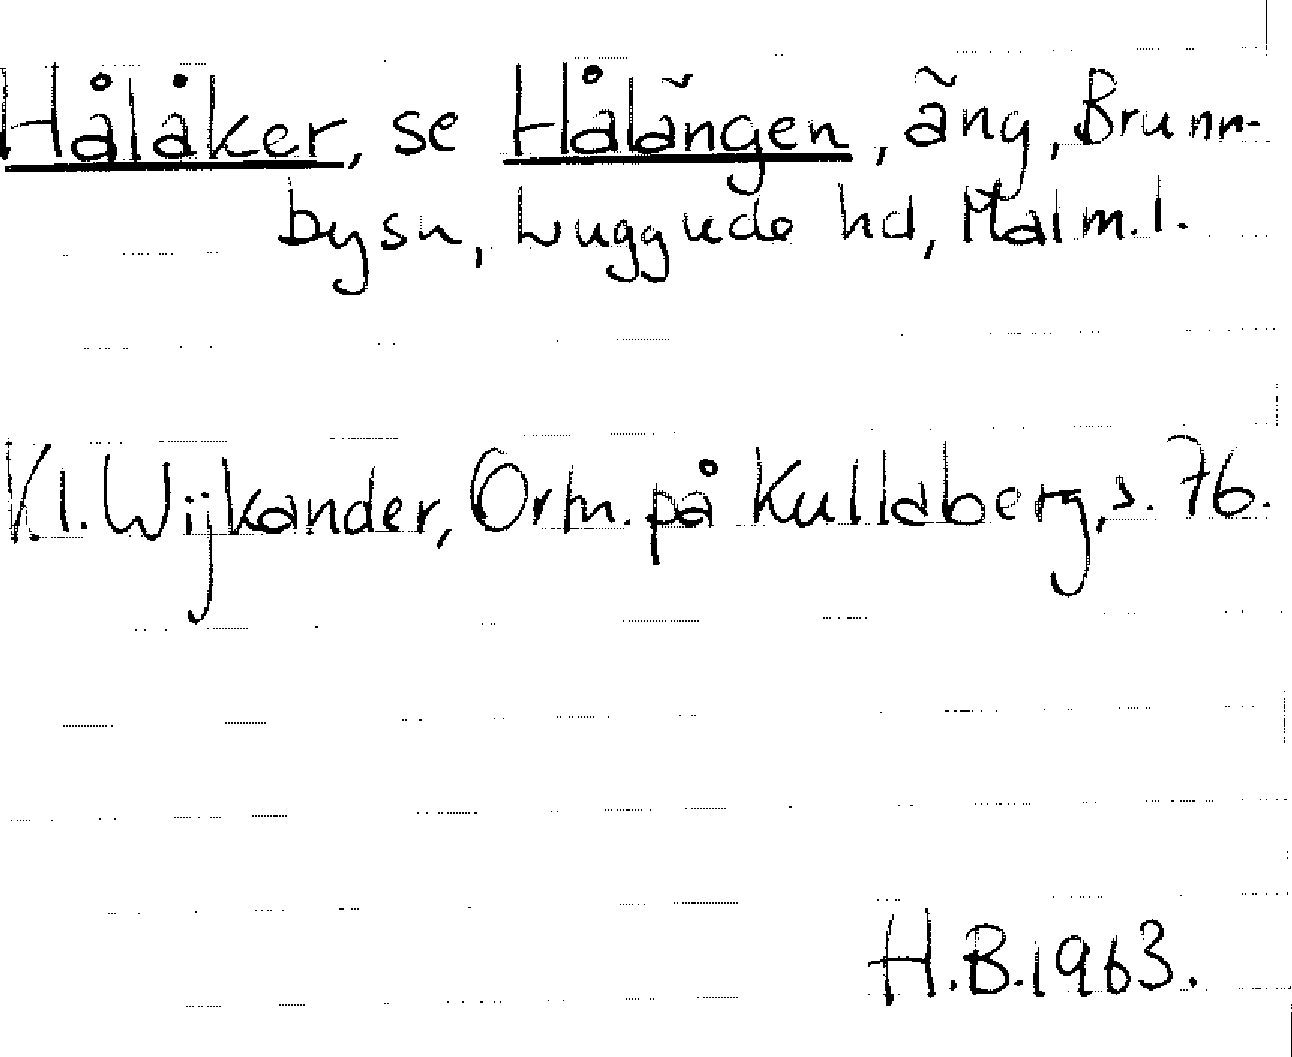 Hålåker, se Hålängen, äng, Brunn-
bysn, Luggude hd, Malm.l.
K.l. Wijkander, Ortn. på Kullaberg, s. 76.
H.B. 1963.